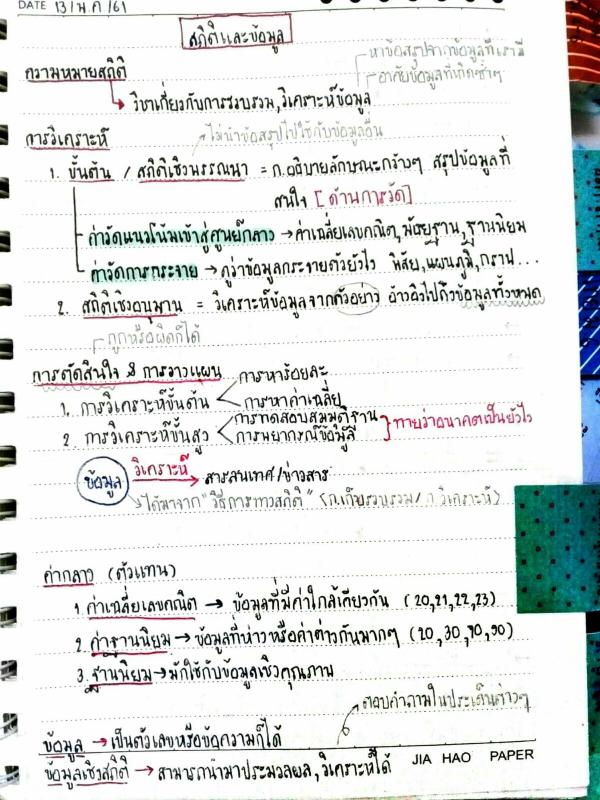 DATE 13/ม.ค/61
สถิติและข้อมูล
หาข้อสรุปจากข้อมูลที่เรามี
ความหมายสถิติ
อาศัยข้อมูลที่เกิดซ้ำๆ
วิชาเกี่ยวกับการรวบรวม,วิเคราะห์ข้อมูล
การวิเคราะห์
ไม่นำข้อสรุปไปใช้กับข้อมูลอื่น
1. ขั้นต้น / สถิติเชิงพรรณนา = ก.อธิบายลักษณะกว้างๆ สรุปข้อมูลที่
สนใจ [ด้านการวัด]
ค่าวัดแนวโน้มเข้าสู่ศูนย์กลาง → ค่าเฉลี่ยเลขคณิต,มัธยฐาน,ฐานนิยม
ค่าวัดการกระจาย → ดูว่าข้อมูลกระจายตัวยังไง พิสัย,แผนภูมิ,กราฟ...
2. สถิติเชิงอนุมาน = วิเคราะห์ข้อมูลจากตัวอย่าง อ้างอิงไปถึงข้อมูลทั้งหมด
ถูกหรือผิดก็ได้
การตัดสินใจ & การวางแผน
การหาร้อยละ
1. การวิเคราะห์ขั้นต้น
การหาค่าเฉลี่ย
การทดสอบสมมุติฐาน
2. การวิเคราะห์ขั้นสูง
การพยากรณ์ข้อมูล
ทายว่าอนาคตเป็นยังไง
ข้อมูล วิเคราะห์ → สารสนเทศ/ข่าวสาร
ได้มาจาก "วิธีการทางสถิติ" (ก.เก็บรวบรวม/ก.วิเคราะห์)
ค่ากลาง (ตัวแทน)
1. ค่าเฉลี่ยเลขคณิต → ข้อมูลที่มีค่าใกล้เคียงกัน (20,21,22,23)
2. ค่าฐานนิยม → ข้อมูลที่ห่างหรือค่าต่างกันมากๆ (20, 30, 70, 90)
3. ฐานนิยม → มักใช้กับข้อมูลเชิงคุณภาพ
ตอบคำถามในประเด็นต่างๆ
ข้อมูล → เป็นตัวเลขหรือข้อความก็ได้
ข้อมูลเชิงสถิติ → สามารถนำมาประมวลผล,วิเคราะห์ได้
JIA HAO PAPER